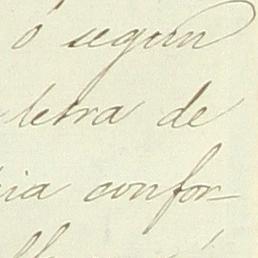 ó segun
letra de
ia confor-